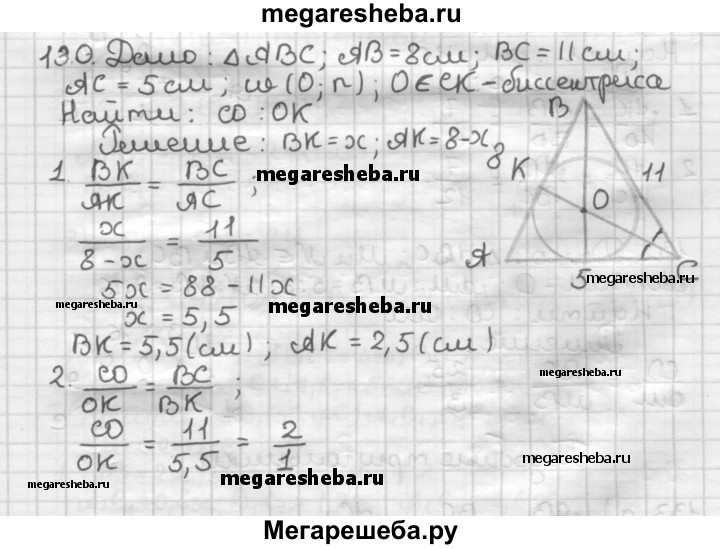 megaresheba.ru
130. Дано: △ABC; AB=8см; BC=11см;
AC=5см; ω(O;r); O∈CK-биссектриса
Найти: CO:OK
Решение: BK=x; AK=8-x
1. BK/AK = BC/AC; megaresheba.ru
x/(8-x) = 11/5
5x=88-11x
megaresheba.ru
x=5,5
megaresheba.ru
BK=5,5(см); AK=2,5(см)
2. CO/OK = BC/BK;
CO/OK = 11/5,5 = 2/1
megaresheba.ru
megaresheba.ru
B
8
K
11
O
A
5
C
megaresheba.ru
megaresheba.ru
megaresheba.ru
Мегарешеба.ру